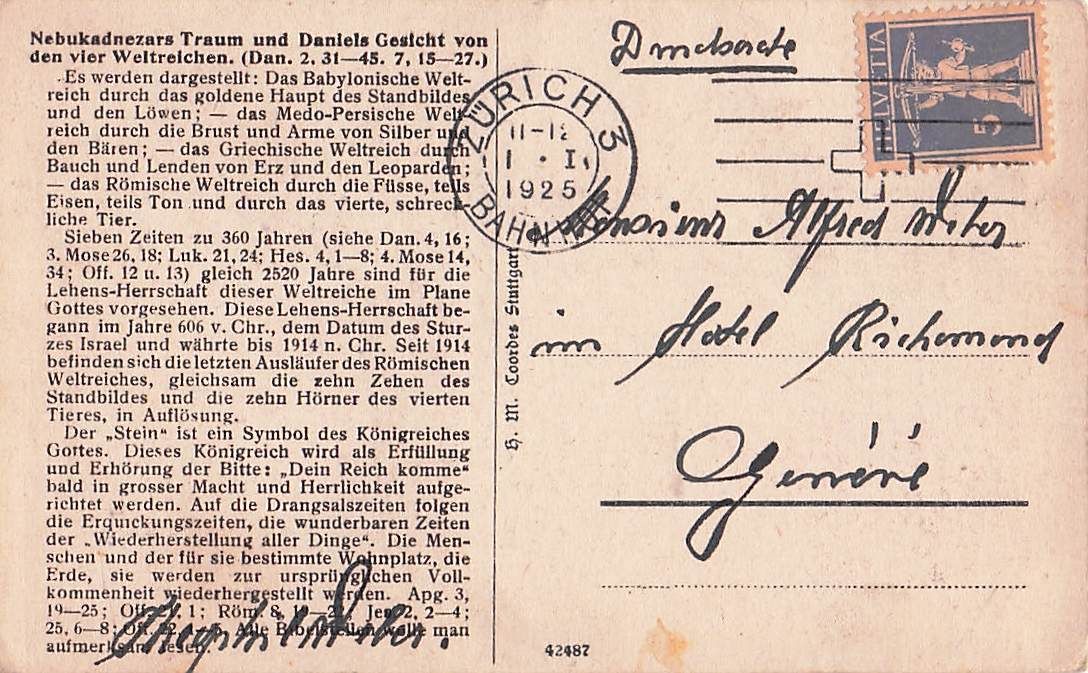 Nebukadnezars Traum und Daniels Gesicht von
den vier Weltreichen. (Dan. 2, 31—45. 7, 15—27.)
Es werden dargestellt: Das Babylonische Welt-
reich durch das goldene Haupt des Standbildes
und den Löwen; — das Medo-Persische Welt-
reich durch die Brust und Arme von Silber und
den Bären; — das Griechische Weltreich durch
Bauch und Lenden von Erz und den Leoparden;
— das Römische Weltreich durch die Füsse, teils
Eisen, teils Ton und durch das vierte, schreck-
liche Tier.
Sieben Zeiten zu 360 Jahren (siehe Dan. 4, 16;
3. Mose 26, 18; Luk. 21, 24; Hes. 4, 1—8; 4. Mose 14,
34; Off. 12 u. 13) gleich 2520 Jahre sind für die
Lehens-Herrschaft dieser Weltreiche im Plane
Gottes vorgesehen. Diese Lehens-Herrschaft be-
gann im Jahre 606 v. Chr., dem Datum des Stur-
zes Israel und währte bis 1914 n. Chr. Seit 1914
befinden sich die letzten Ausläufer des Römischen
Weltreiches, gleichsam die zehn Zehen des
Standbildes und die zehn Hörner des vierten
Tieres, in Auflösung.
Der „Stein“ ist ein Symbol des Königreiches
Gottes. Dieses Königreich wird als Erfüllung
und Erhörung der Bitte: „Dein Reich komme“
bald in grosser Macht und Herrlichkeit aufge-
richtet werden. Auf die Drangsalszeiten folgen
die Erquickungszeiten, die wunderbaren Zeiten
der „Wiederherstellung aller Dinge“. Die Men-
schen und der für sie bestimmte Wohnplatz, die
Erde, sie werden zur ursprünglichen Voll-
kommenheit wiederhergestellt werden. Apg. 3,
19—25; Off. 1; Röm. 8, Jes. 2, 2—4;
25, 6—8; Off. 22, Alle Bibelstellen wolle man
aufmerksam lesen.
H. M. Coordes Stuttgart
42487
Drucksache
ZÜRICH 3
11-12
1 . I
1925
BAHNHOF
HELVETIA
5
Monsieur Alfred Weber
im Hotel Richemond
Genéve